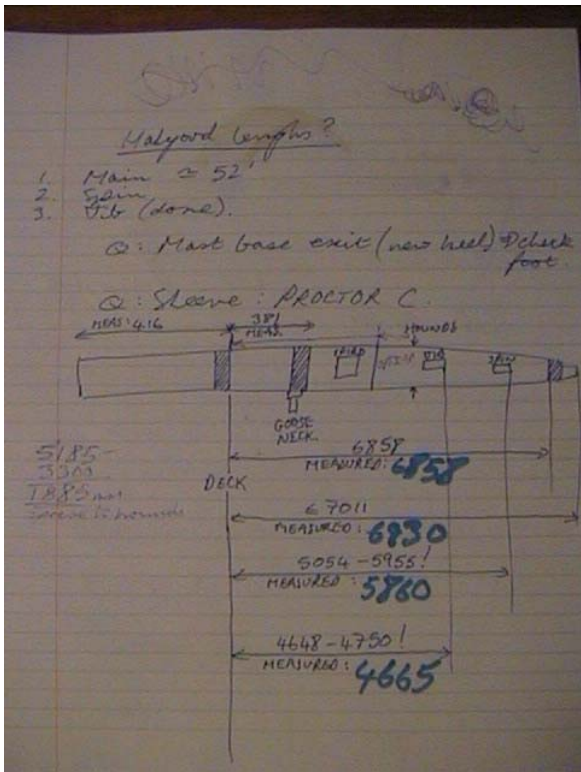 Halyard lengths?
1. Main ≃ 52'
2. Spin
3. Jib (done).
Q: Mast base exit (new heel) check foot.
Q: Sleeve: PROCTOR C.
MEAS: 416
381
MEAS.
HOUNDS
SPIN
GOOSE
NECK.
DECK
5185 -
3300
1885 mm
sleeve to hounds
6858
MEASURED: 6858
≤ 7011
MEASURED: 6930
5054 - 5955!
MEASURED: 5860
4648 - 4750!
MEASURED: 4665